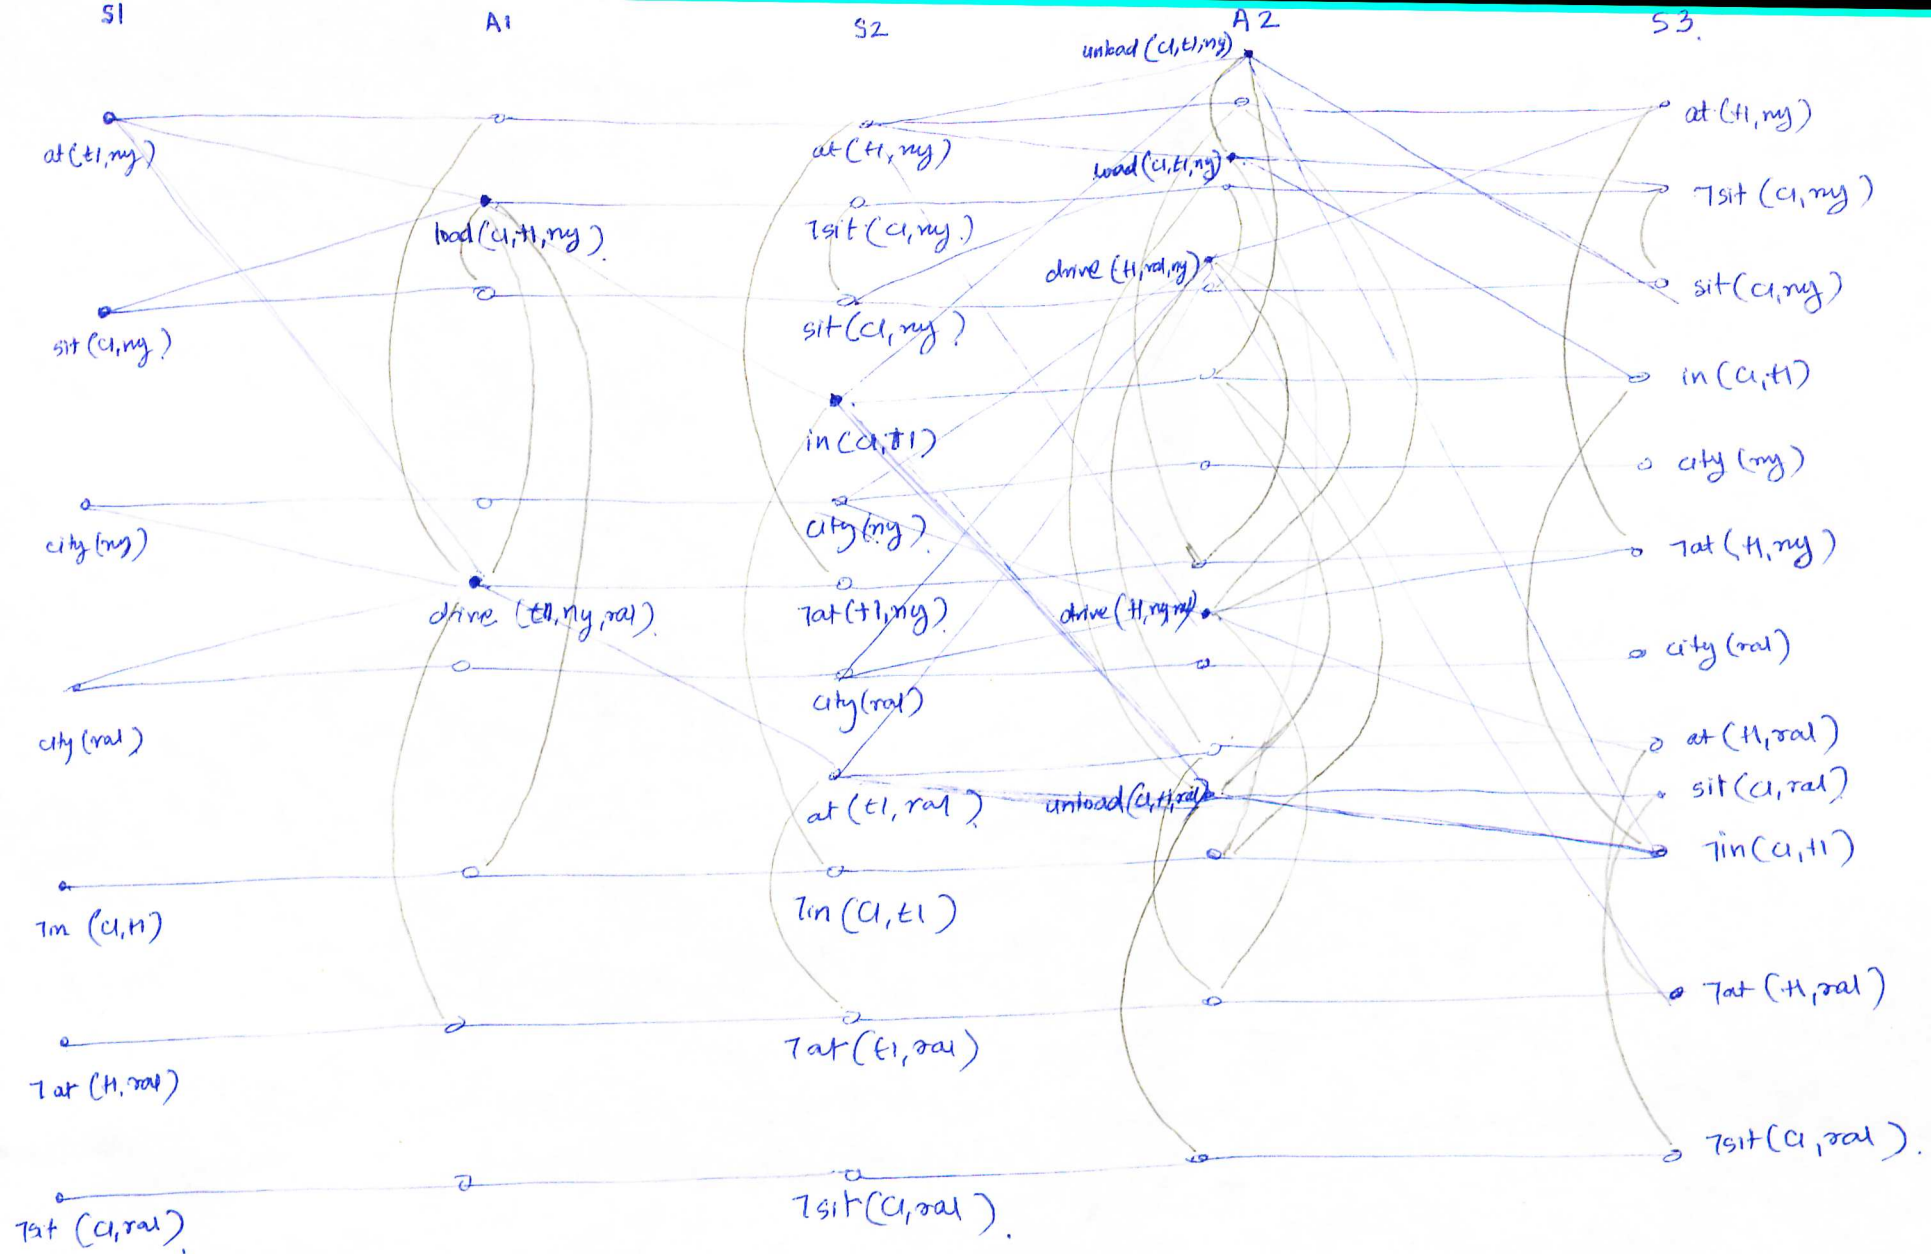 S1
A1
S2
A2
S3.
at(t1,ny)
sit(c1,ny)
city(ny)
city(ral)
7in (c1,t1)
7at (t1,ral)
7sit (c1,ral)
load(c1,t1,ny)
drive (t1,ny,ral)
at(t1,ny)
7sit(c1,ny)
sit(c1,ny)
in(c1,t1)
city(ny)
7at(t1,ny)
city(ral)
at(t1,ral)
7in(c1,t1)
7at(t1,ral)
7sit(c1,ral)
unload(c1,t1,ny)
load(c1,t1,ny)
drive(t1,ral,ny)
drive(t1,ny,ral)
unload(c1,t1,ral)
at(t1,ny)
7sit(c1,ny)
sit(c1,ny)
in(c1,t1)
city(ny)
7at(t1,ny)
city(ral)
at(t1,ral)
sit(c1,ral)
7in(c1,t1)
7at(t1,ral)
7sit(c1,ral).